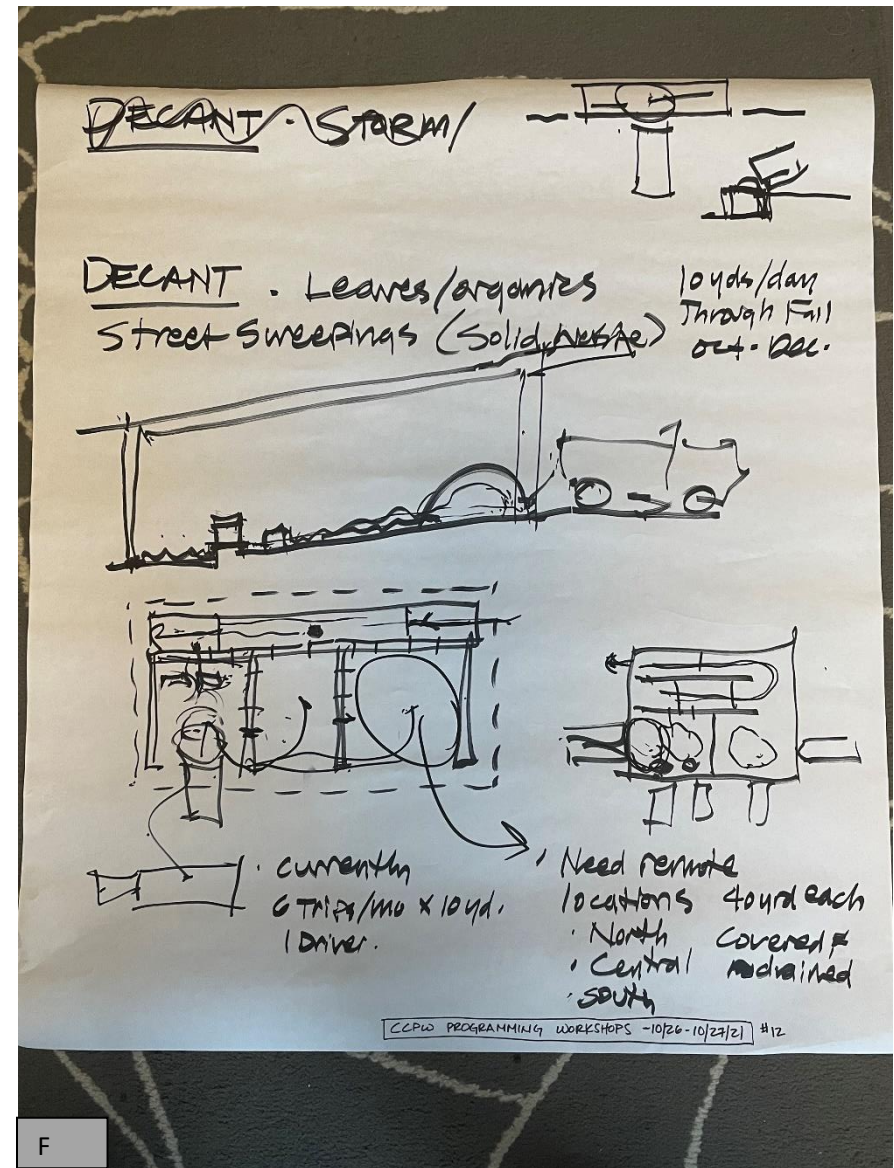 DECANT · STORM/
DECANT · Leaves/organics
Street Sweepings (Solid Waste)
10 yds/day
Through Fall
Oct. - Dec.
· Currently
6 Trips/mo x 10 yd.
1 Driver.
· Need remote
locations 40 yrd each
· North Covered &
· Central drained
· South
CCPW PROGRAMMING WORKSHOPS - 10/26 - 10/27/21 #12
F